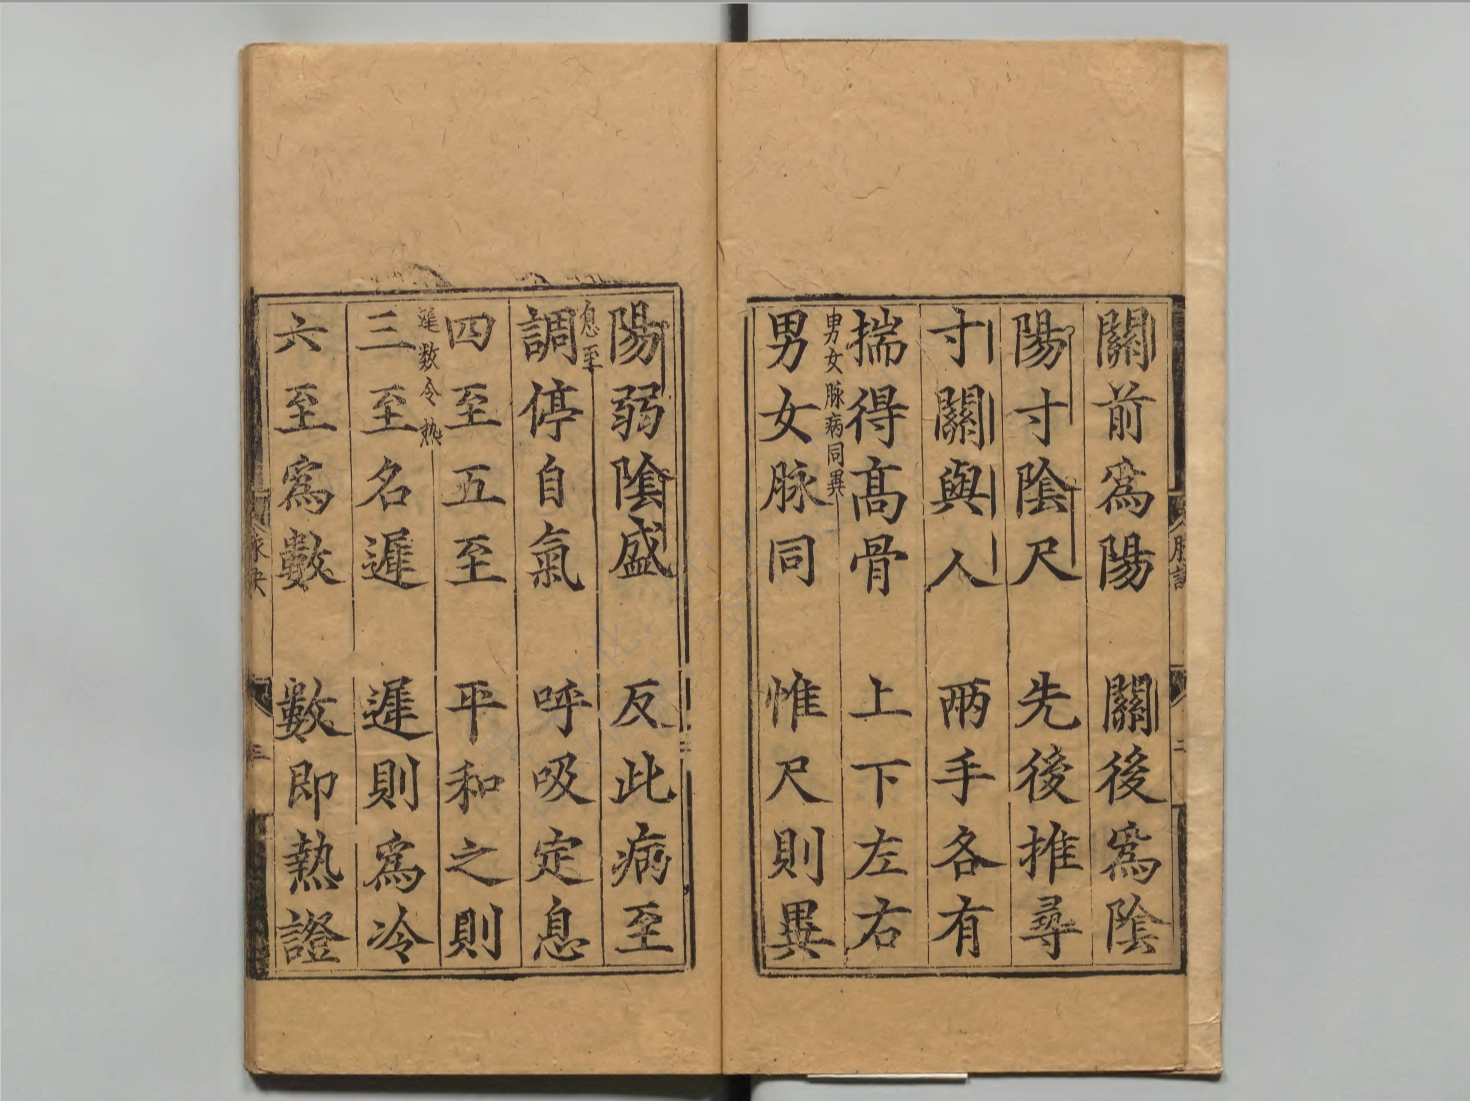 關前爲陽 關後爲陰
陽寸陰尺 先後推尋
寸關與人 兩手各有
揣得高骨 上下左右
男女脉病同異
男女脉同 惟尺則異
陽弱陰盛 反此病至
息至
調停自氣 呼吸定息
四至五至 平和之則
遲數冷熱
三至名遲 遲則爲冷
六至爲數 數即熱證